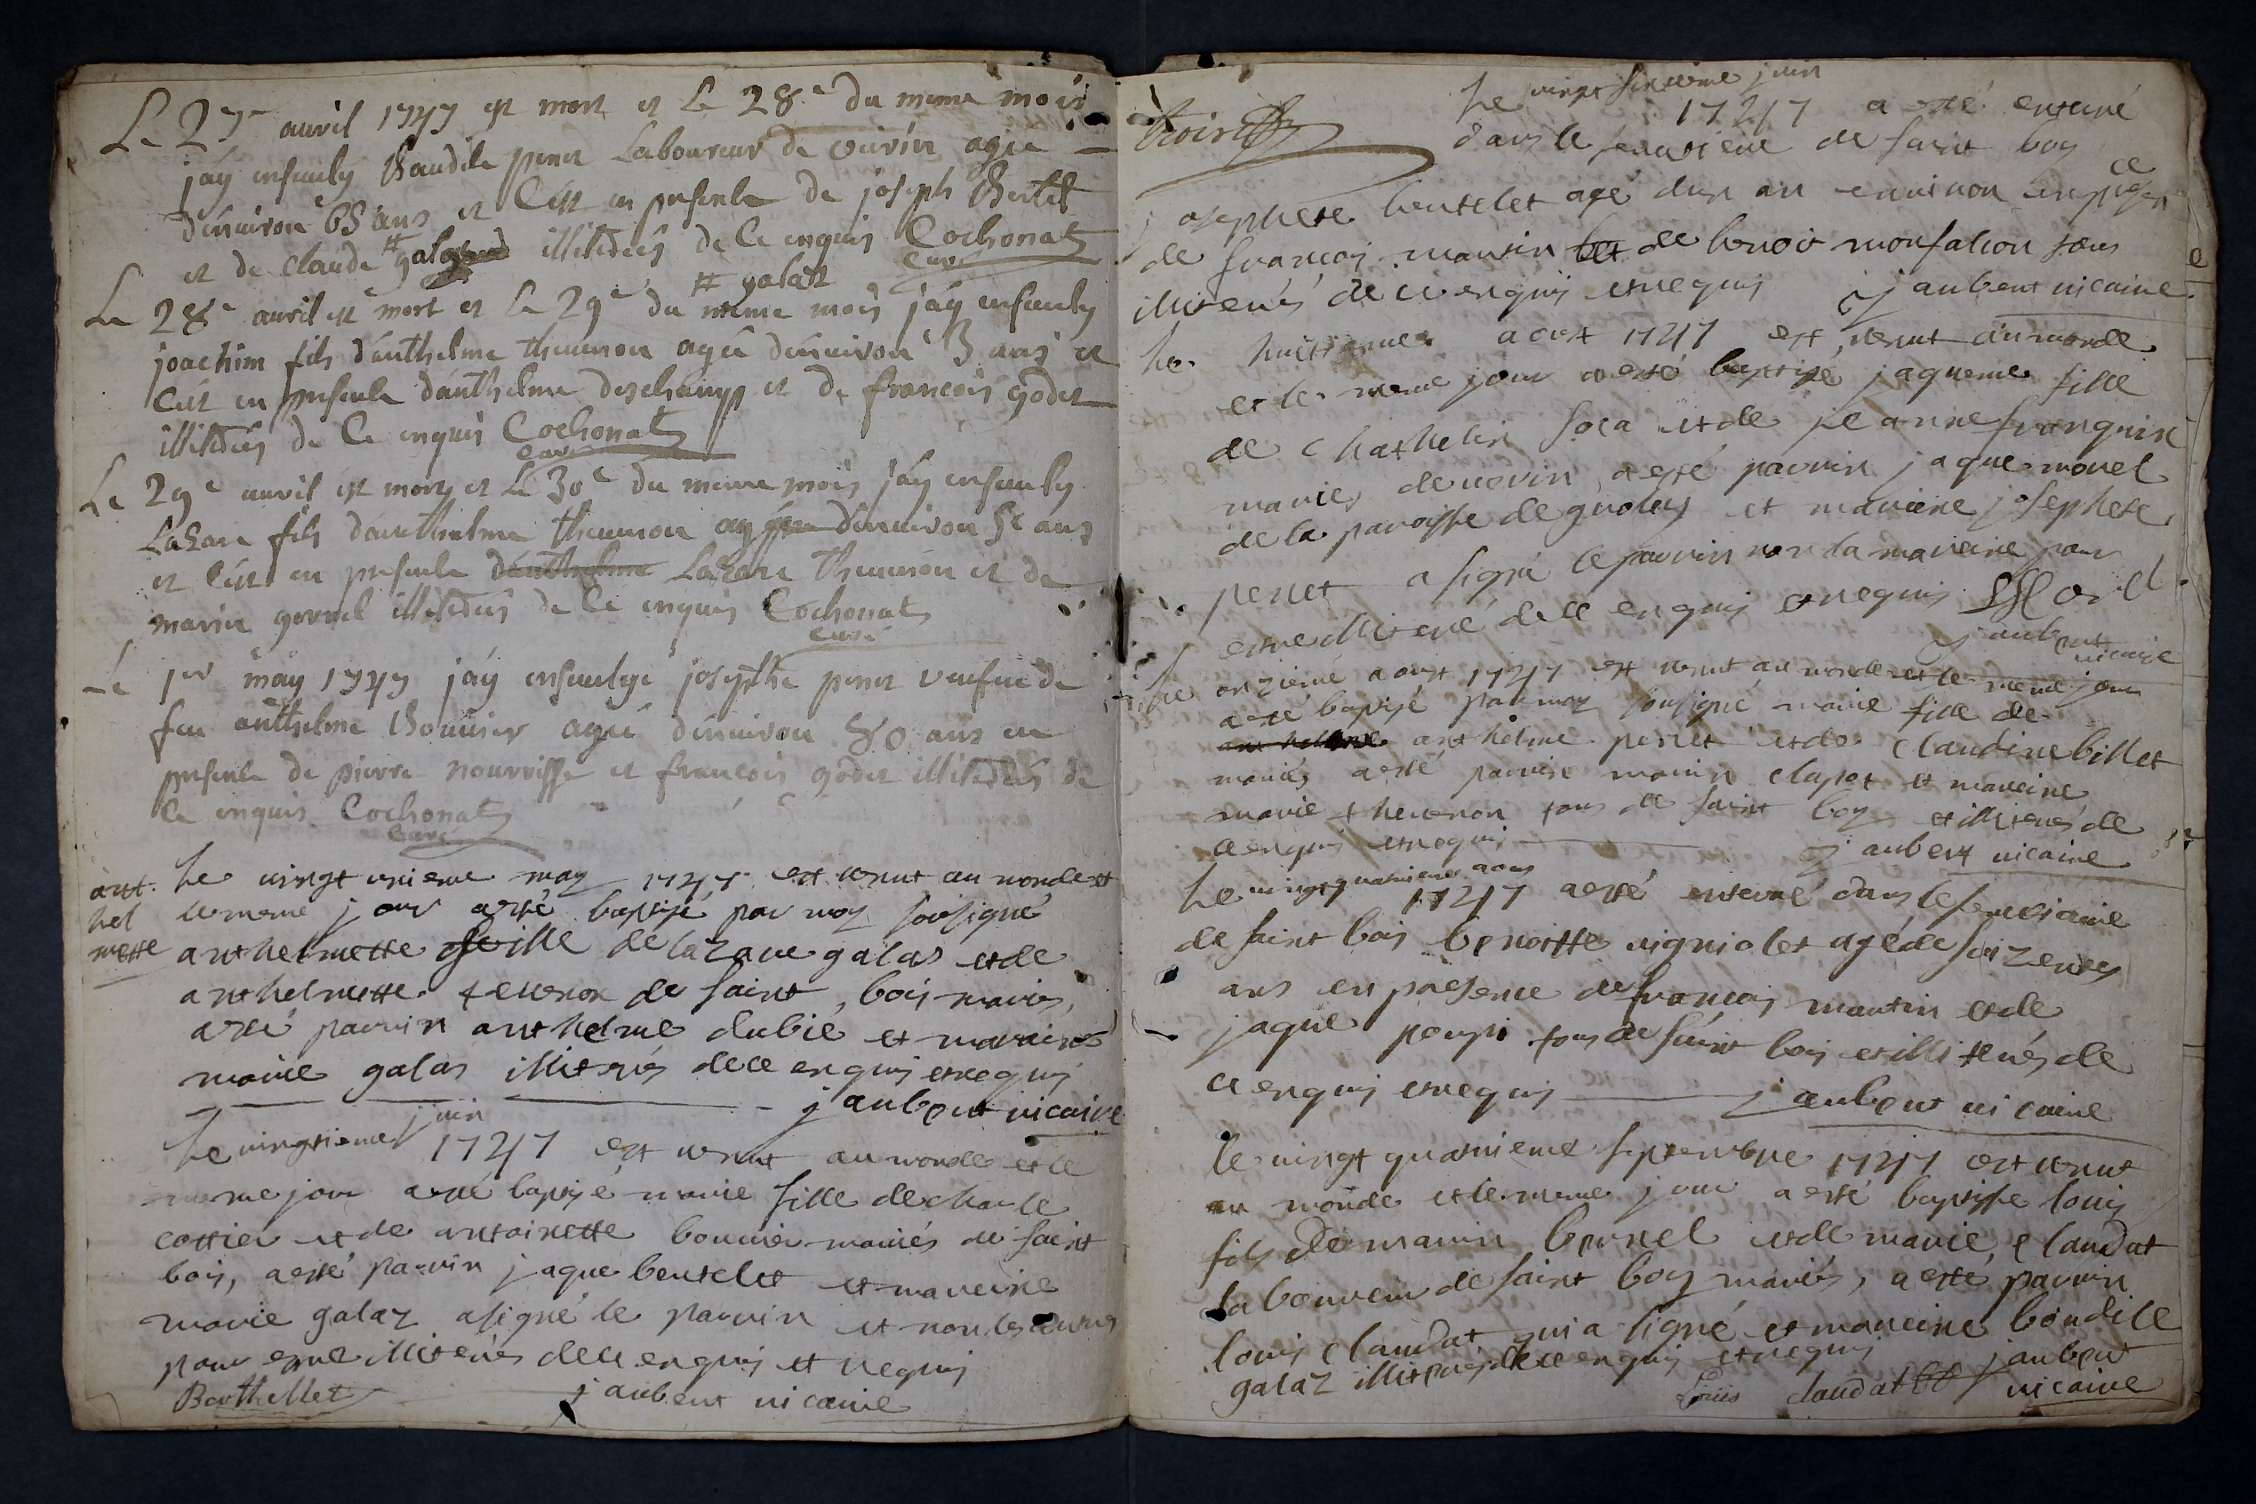 Le 27e auril 1747 est mort et Le 28e du meme mois
j'ay enseuely Baudile peret Laboureur de veirin agée
d'enuiron 65 ans et C'est en presence de joseph Bertet
et de claude # illiterés de Ce enquis Cochonat
curé
# galaz
Le 28e auril est mort et Le 29e du meme mois j'ay enseuely
joachim fils d'anthelme theuenon agée d'enuiron 3 ans et
C'est en presence d'anthelme deschamp et de francois godet
illiterés de Ce enquis Cochonat
curé
Le 29e auril est mort et Le 30e du meme mois j'ay enseuely
Lazare fils d'anthelme theuenon agée d'enuiron 5e ans
et C'est en presence d'anthelme Lazare theuenon et de
marin gornel illiterés de Ce enquis Cochonat
Curé
Le 1er may 1747 j'ay enseuelye josephte peret veufue de
feu anthelme Bouuier agée d'enuiron 80 ans en
presence de pierre nourrisse et francois godet illiterés de
Ce enquis Cochonat
Curé
ant
hel
mette
Le vingt unieme may 1747 est venut au monde et
le meme jour a esté baptisé par moy sousigné
anthelmette feille de lazare galas et de
anthelmette teuenon de saint bois mariés,
a esté parrin anthelme dubié et mareine
marie galas illiterés de ce enquis et requis
j aubert vicaire
juin
Le vingtieme 1747 est venut au monde et le
meme jour a esté baptisé marie fille de charle
cottier et de antoinette bouuier mariés de saint
bois, a esté parrin jaque bertelet et mareine
marie galaz a signé le parrin et non les autres
pour estre illiterés de ce enquis et requis
Barthellet j aubert vicaire
Le vingt sixieme juin
1747 a esté enterré
dans le semetiere de saint bois
josephete bertelet agé d'un an enuiron en presence
de francois martin et de benoit monfalcon tous
illiterés de ce enquis et requis j aubert vicaire
Le huittieme aoust 1747 est venut au monde
et le meme jour a esté baptisé jaqueme fille
de Chathelin soca et de jeanne franquin
mariés de veirin, a esté parrin jaque morel
de la paroisse de grolée et mareine josephete
peret a signé le parrin non la mareine pour
estre illiteré de ce enquis et requis Morel
j aubert
vicaire
Le onzieme aoust 1747 est venut au monde et le meme jour
a esté baptisé par moy sousigné marie fille de
anthelme anthelme peret et de claudine billet
mariés a esté parrin marin clapot et mareine
marie theuenon tous de saint bois et illiterés de
ce enquis et requis j aubert vicaire
Le vingt quatrieme aous
1747 a esté enterré dans le semetiere
de saint bois benoitte vigniolet agé de soizente
ans en presence de francois martin et de
jaque poupi tous de saint bois et illiterés de
ce enquis et requis j aubert vicaire
le vingt quatrieme septembre 1747 est venut
au monde et le meme jour a esté baptisse louis
fils de marin bornel et de marie claudat
laboureur de saint boy mariés, a esté parrin
louis claudat qui a signé et mareine boudile
galaz illiterés de ce enquis et requis j aubert
Louis claudat vicaire